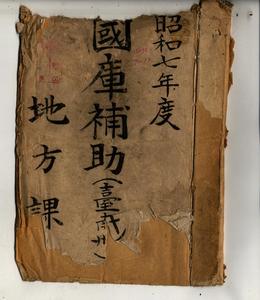 昭和七年度
國庫補助
地方課